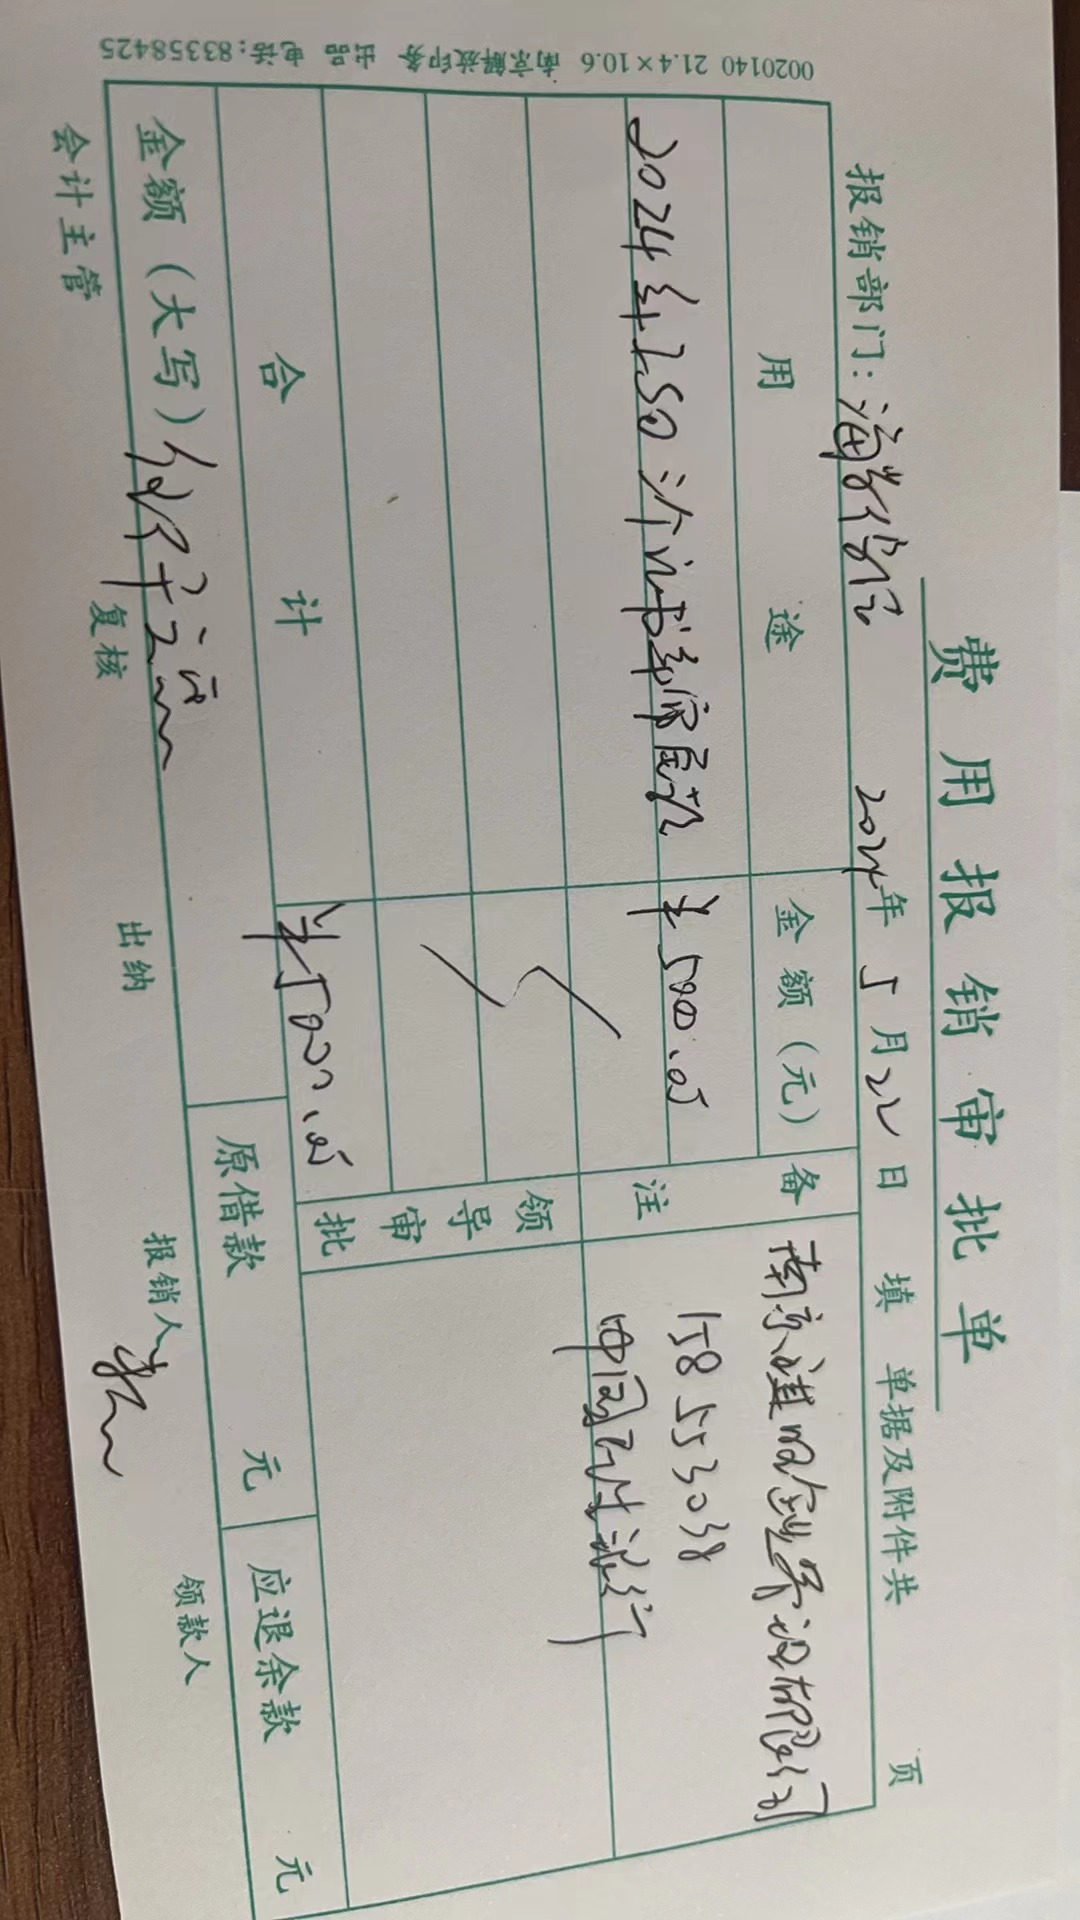 费用报销审批单
报销部门: 2024年5月22日 填 单据及附件共 页
用途 金额（元） 备注
2024年 ISO 三个证书年审 ￥500.00
南京 有限公司
158553038
中国民生银行
领导审批
合计 ￥500.00
金额（大写） 伍仟元 原借款 元 应退余款 元
会计主管 复核 出纳 报销人 领款人
0020140 21.4×10.6 南京解放印务 出品 电话:83358425